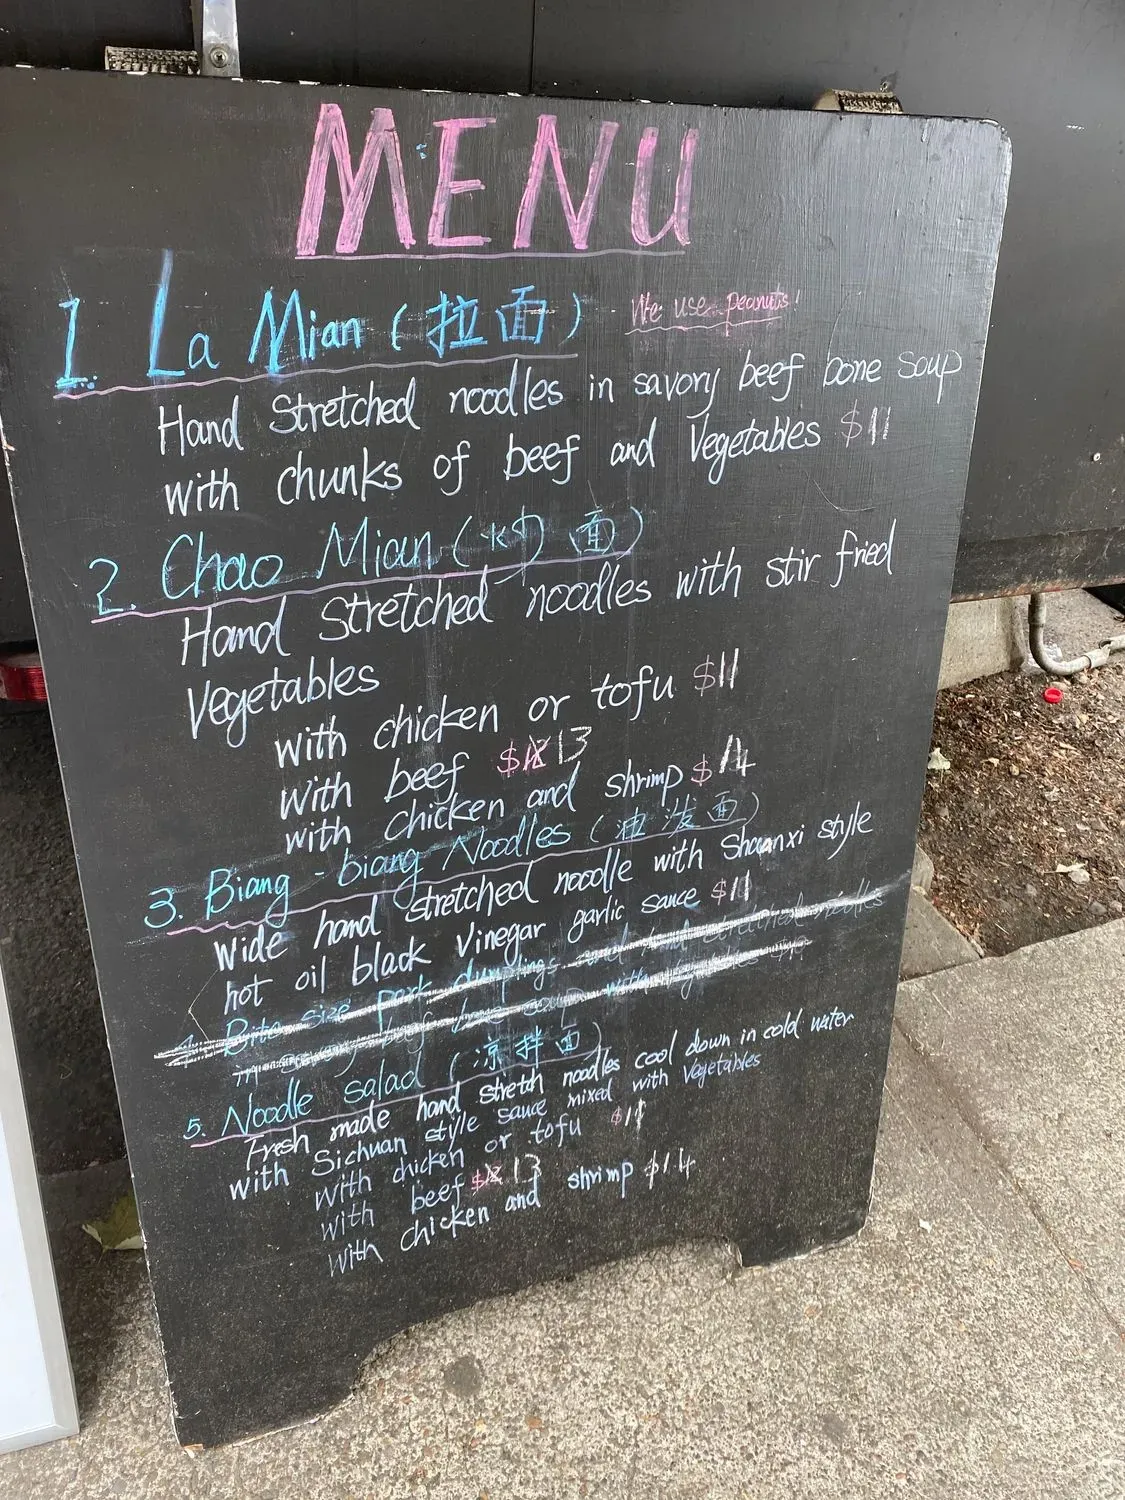 MENU
1. La Mian (拉面) We use peanuts!
Hand Stretched noodles in savory beef bone soup
with chunks of beef and Vegetables $11
2. Chao Mian (炒面)
Hand Stretched noodles with stir fried
Vegetables
with chicken or tofu $11
with beef $12 13
with chicken and shrimp $14
3. Biang-biang Noodles (油泼面)
wide hand stretched noodle with Shaanxi style
hot oil black Vinegar garlic sauce $11
4. Bite size pork dumplings and hand stretched noodles
in savory beef bone soup with vegetables
5. Noodle salad (凉拌面)
Fresh made hand stretch noodles cool down in cold water
with Sichuan style sauce mixed with Vegetables
with chicken or tofu $11
with beef $12 13
with chicken and shrimp $14